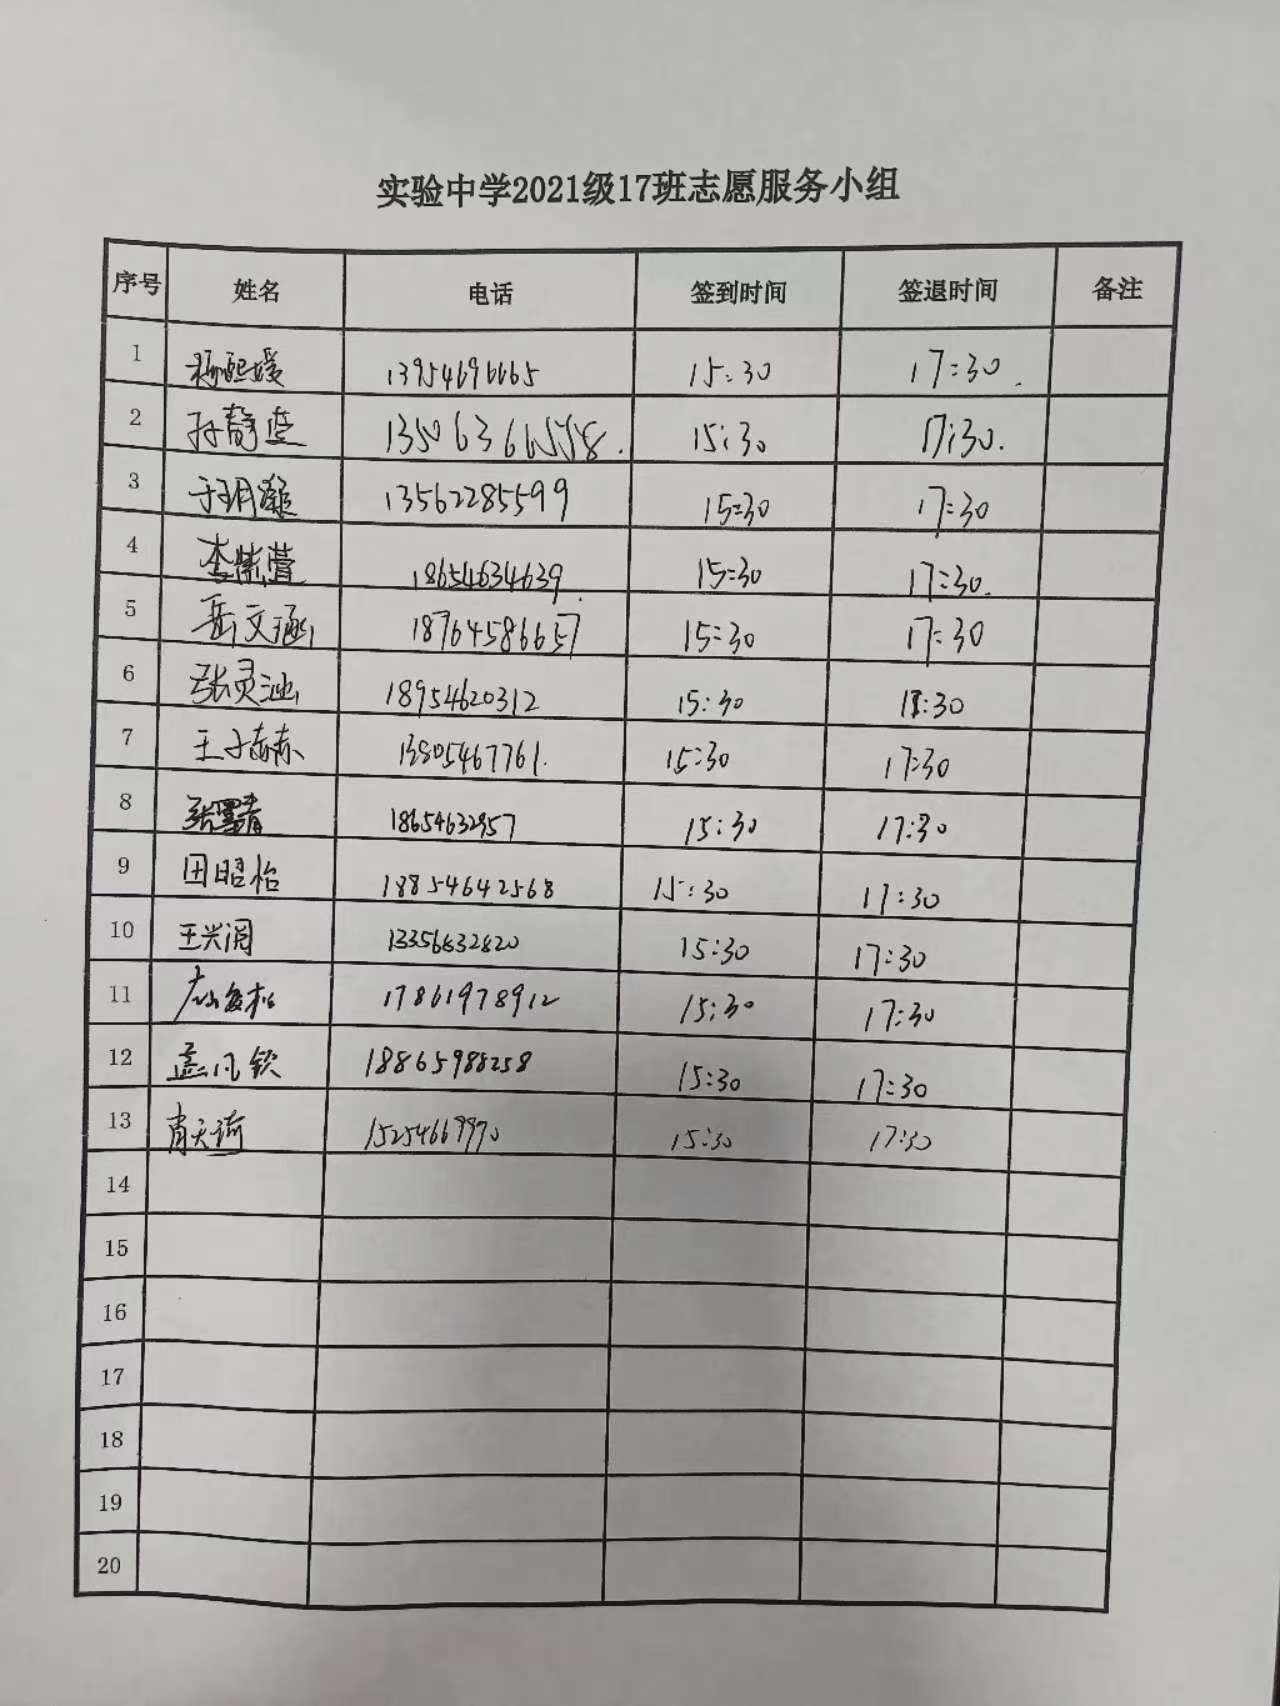 实验中学2021级17班志愿服务小组
序号 姓名 电话 签到时间 签退时间 备注
1 杨熙媛 13954696665 15:30 17:30
2 孙静萱 15:30 17:30.
3 于玥 13562285599 15:30 17:30
4 李紫萱 18654634639 15:30 17:30.
5 岳文涵 18764586657 15:30 17:30
6 张灵 18954620312 15:30 17:30
7 王子赫 13805467761. 15:30 17:30
8 张青 18654632957 15:30 17:30
9 田昭怡 18854642568 15:30 17:30
10 王兴润 13356632820 15:30 17:30
11 17861978912 15:30 17:30
12 孟凡钦 18865988258 15:30 17:30
13 肖天 15254669970 15:30 17:30
14
15
16
17
18
19
20